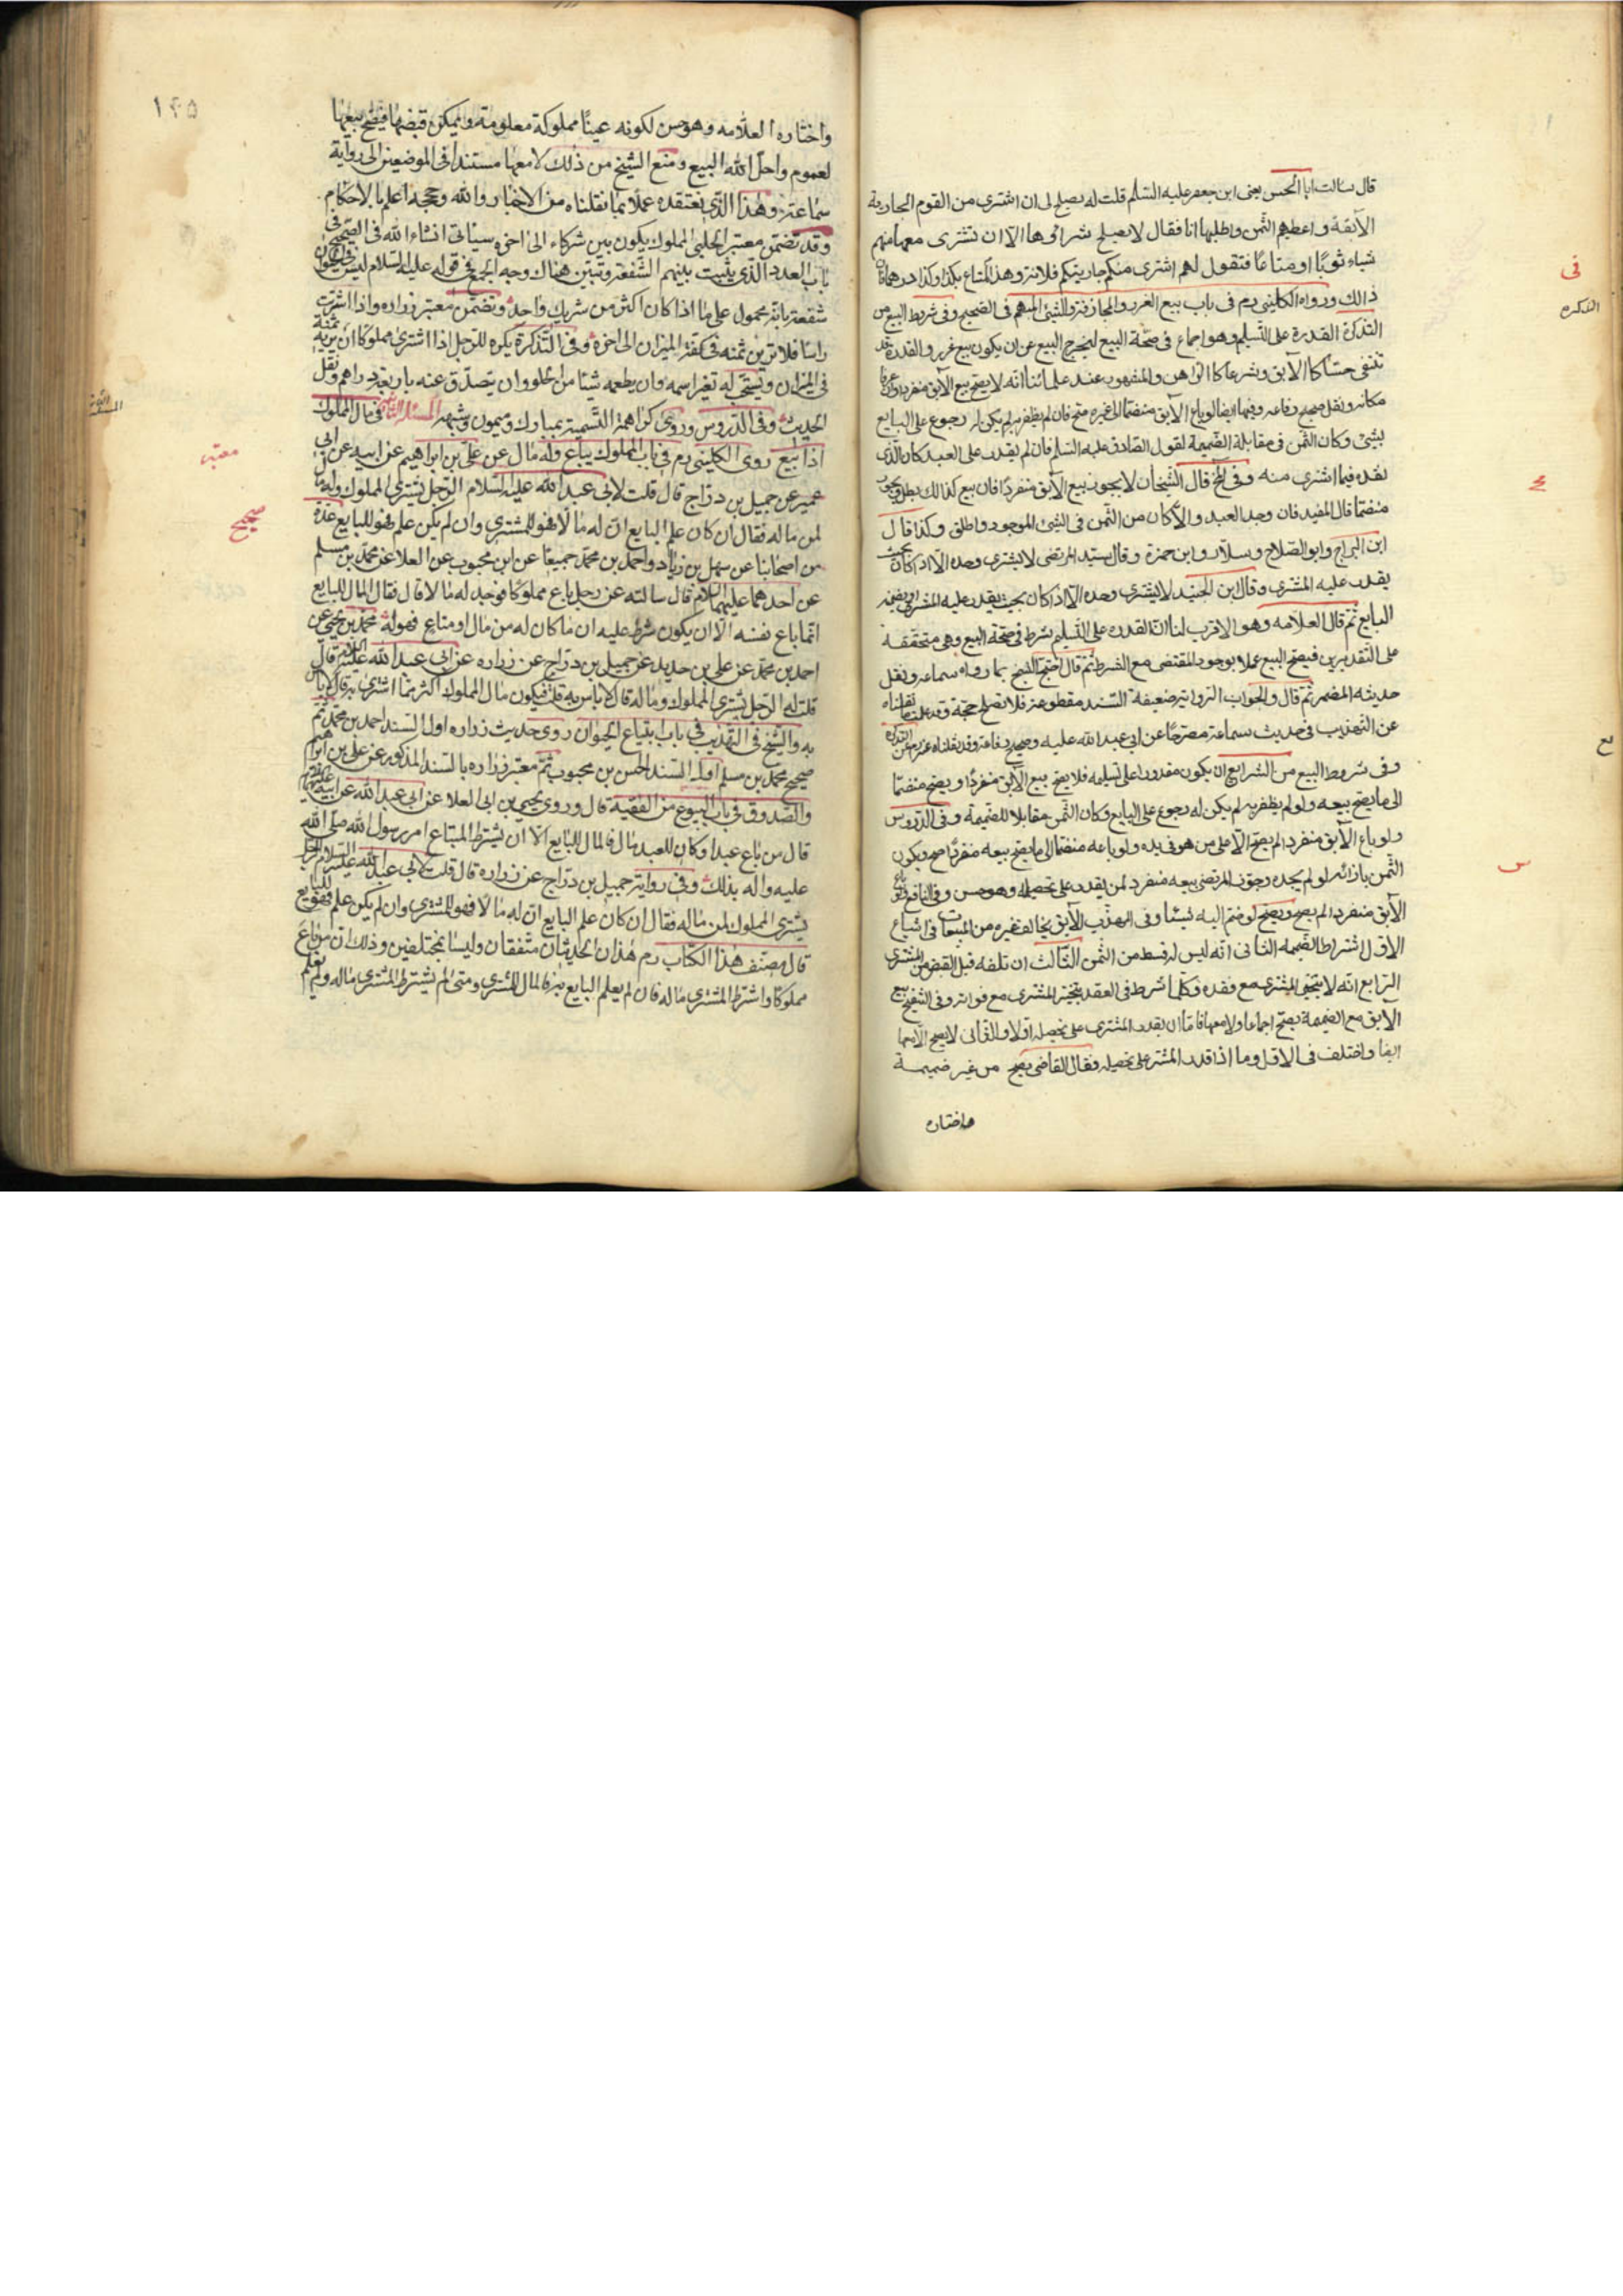 قال سالت ابا الحسن يعنى ابن جعفر عليه السلم قلت له يصلح لى ان اشترى من القوم الجارية
الآبقة واعطيهم الثمن واطلبها انا فقال لا يصلح شرائها الا ان تشترى معها منهم
شياء ثوبًا او متاعًا فتقول لهم اشترى منكم جاريتكم فلانة وهذا المتاع بكذا وكذا درهما فان
ذالك ورواه الكلينى رم فى باب بيع الغرر والمجازفة والشئ المبهم فى الصحيح وفى شريط البيع من
التذكرة القدرة على التسليم وهو اجماع فى صحّة البيع ليخرج البيع عن ان يكون بيع غرر والقدرة قد
تنتفى حسًّا كالآبق وشرعا كالراهن والمشهور عند علمائنا انّه لا يصح بيع الآبق منفردا وان عرفا
مكانه ونقل صحيح رفاعه وفيها ايضا لو باع الآبق منضمًا الى غيره صح فان لم يظفر به لم يكن له رجوع على البايع
بشئ وكان الثمن فى مقابلة الضميمة لقول الصادق عليه السلم فان لم يقدر على العبد كان الذى
نقد فيما اشترى منه وفى لخ قال الشيخان لا يجوز بيع الآبق منفردًا فان بيع كذالك بطل ويجوز
منضمّا قال المفيد فان وجد العبد والاّ كان من الثمن فى الشئ الموجود واطلق وكذا قال
ابن البراج وابو الصلاح وسلّار وابن حمزة وقال سيّد المرتضى لا يشترى وحده الّا اذا كان بحيث
يقدر عليه المشترى وقال ابن الجنيد لا يشترى وحده الّا اذا كان بحيث يقدر عليه المشترى او يضمنه
البايع ثمّ قال العلامه وهو الاقرب لنا انّ القدره على التسليم شرط فى صحة البيع وهى متحققة
على التقديرين فيصح البيع عملا بوجود المقتضى مع الشرط ثمّ قال احتج الشيخ بما رواه سماعه ونقل
حديثه المضمر ثمّ قال والجواب الرواية ضعيفة السّند مقطوعة فلا تصلح حجّة وقد علمت ما نقلناه
عن التهذيب فى حديث سماعة مصرحًا عن ابى عبد الله عليه وصحيح رفاعة وقد نقلناه عنه رم عن التذكره
وفى شروط البيع من الشرايع ان يكون مقدورا على تسليمه فلا يصح بيع الآبق منفردًا ويصح منضمّا
الى ما يصح بيعه ولو لم يظفر به لم يكن له رجوع على البايع وكان الثمن مقابلا للضميمة وفى الدروس
ولو باع الآبق منفردا لم يصح الّا على من هو فى يده ولو باعه منضمّا الى ما يصح بيعه منفردًا صح ويكون
الثمن بازائه لو لم يجده وجوز المرتضى بيعه منفرد لمن يقدر على تحصيله وهو حسن وفى النافع لو باع
الآبق منفردا لم يصح ويصح لو ضم اليه شيئا وفى المهذب الآبق يخالف غيره من المبيعات فى اشياء
الاول اشتراط الضميمه الثانى انّه ليس له قسط من الثمن الثالث ان تلفه قبل القبض من المشترى
الرابع انه لا يتخير المشترى مع فقده وكلما شرط فى العقد يتخير المشترى مع فواته وفى التنقيح بيع
الآبق مع الضميمة يصح اجماعا ولا معها فامّا ان يقدر المشترى على تحصيله اولا والثانى لا يصح الّا معها
ايضا واختلف فى الاول وما اذا قدر المشترى على تحصيله وفقال القاضى يصح من غير ضميمة
واختاره
فى
التذكره
مح
ع
س
١٢٥
واختاره العلامه وهو حسن لكونه عينًا مملوكة معلومة وايمكن قبضها فيصح بيعها
لعموم واحل الله البيع ومنع الشيخ من ذلك لا معها مستندا فى الموضعين الى رواية
سماعة وهذا الّذى نعتقده عملا بما نقلناه من الاخبار والله وحججه اعلم بالاحكام
وقد تضمّن معتبر الحلبى المملوك يكون بين شركاء الى اخره سيأتى انشاء الله فى الصحيح فى
باب العدد الّذى يثبت بينهم الشفعة ونبين هناك وجه الجمع فى قوله عليه السلام ليس فى الحيوان
شفعة بانّه محمول على ما اذا كان اكثر من شريك واحد وتضمّن معتبر زراره واذا اشتريت
راسًا فلا ترين ثمنه فى كفة الميزان الى اخره وفى التذكرة يكره للرّجل اذا اشترى مملوكًا ان يريه ثمنه
فى الميزان ويستحبّ له تغير اسمه وان يطعمه شيئا من الحلو وان يتصدّق عنه باربعة دراهم ونقل
الحديث وفى الدّروس وروى كراهة التسمية بمبارك وميمون وشبهه المسئلة الثانية فى مال المملوك
اذا بيع روى الكلينى رم فى باب المملوك يباع وله مال عن على بن ابراهيم عن ابيه عن ابن ابى
عمير عن جميل بن درّاج قال قلت لابى عبد الله عليه السلام الرّجل يشترى المملوك وله مال
لمن ماله فقال ان كان علم البايع انّ له مالا فهو للمشترى وان لم يكن علم فهو للبايع عدّة
من اصحابنا عن سهل بن زياد واحمد بن محمّد جميعًا عن ابن محبوب عن العلا عن محمّد بن مسلم
عن احدهما عليهما السلام قال سالته عن رجل باع مملوكًا فوجد له مالا قال فقال المال للبايع
انّما باع نفسه الّا ان يكون شرط عليه ان ما كان له من مال او متاع فهو له محمّد بن يحيى عن
احمد بن محمّد عن على بن حديد عن جميل بن درّاج عن زراره عن ابى عبد الله عليه السلام قال
قلت له الرّجل يشترى المملوك وماله قال لا باس به قلت فيكون مال المملوك اكثر ممّا اشتراه به قال لا باس
به والشيخ فى التهذيب فى باب ابتياع الحيوان روى حديث زراره اول السند احمد بن محمّد ثم
صحيح محمد بن مسلم اوله السند الحسن بن محبوب ثمّ معتبر زراره بالسند المذكور عن على بن ابراهيم
والصّدوق فى باب البيوع من الفقيه قال وروى يحيى بن ابى العلا عن ابى عبد الله عن ابيه عليهما
قال من باع عبدا وكان للعبد مال فالمال للبايع الّا ان يشترط المبتاع امر رسول الله صلّى الله
عليه واله بذلك وفى رواية جميل بن درّاج عن زراره قال قلت لابى عبد الله عليه السلام الرجل
يشترى المملوك لمن ماله فقال ان كان علم البايع انّ له مالا فهو للمشترى وان لم يكن علم فهو للبايع
قال مصنّف هذا الكتاب رم هذان الحديثان متّفقان وليسا بمختلفين وذلك انّ من باع
مملوكًا واشترط المشترى ماله فان لم يعلم البايع به فالمال للمشترى ومتى لم يشترط المشترى ماله ولم يعلم
معتبر
صحيح